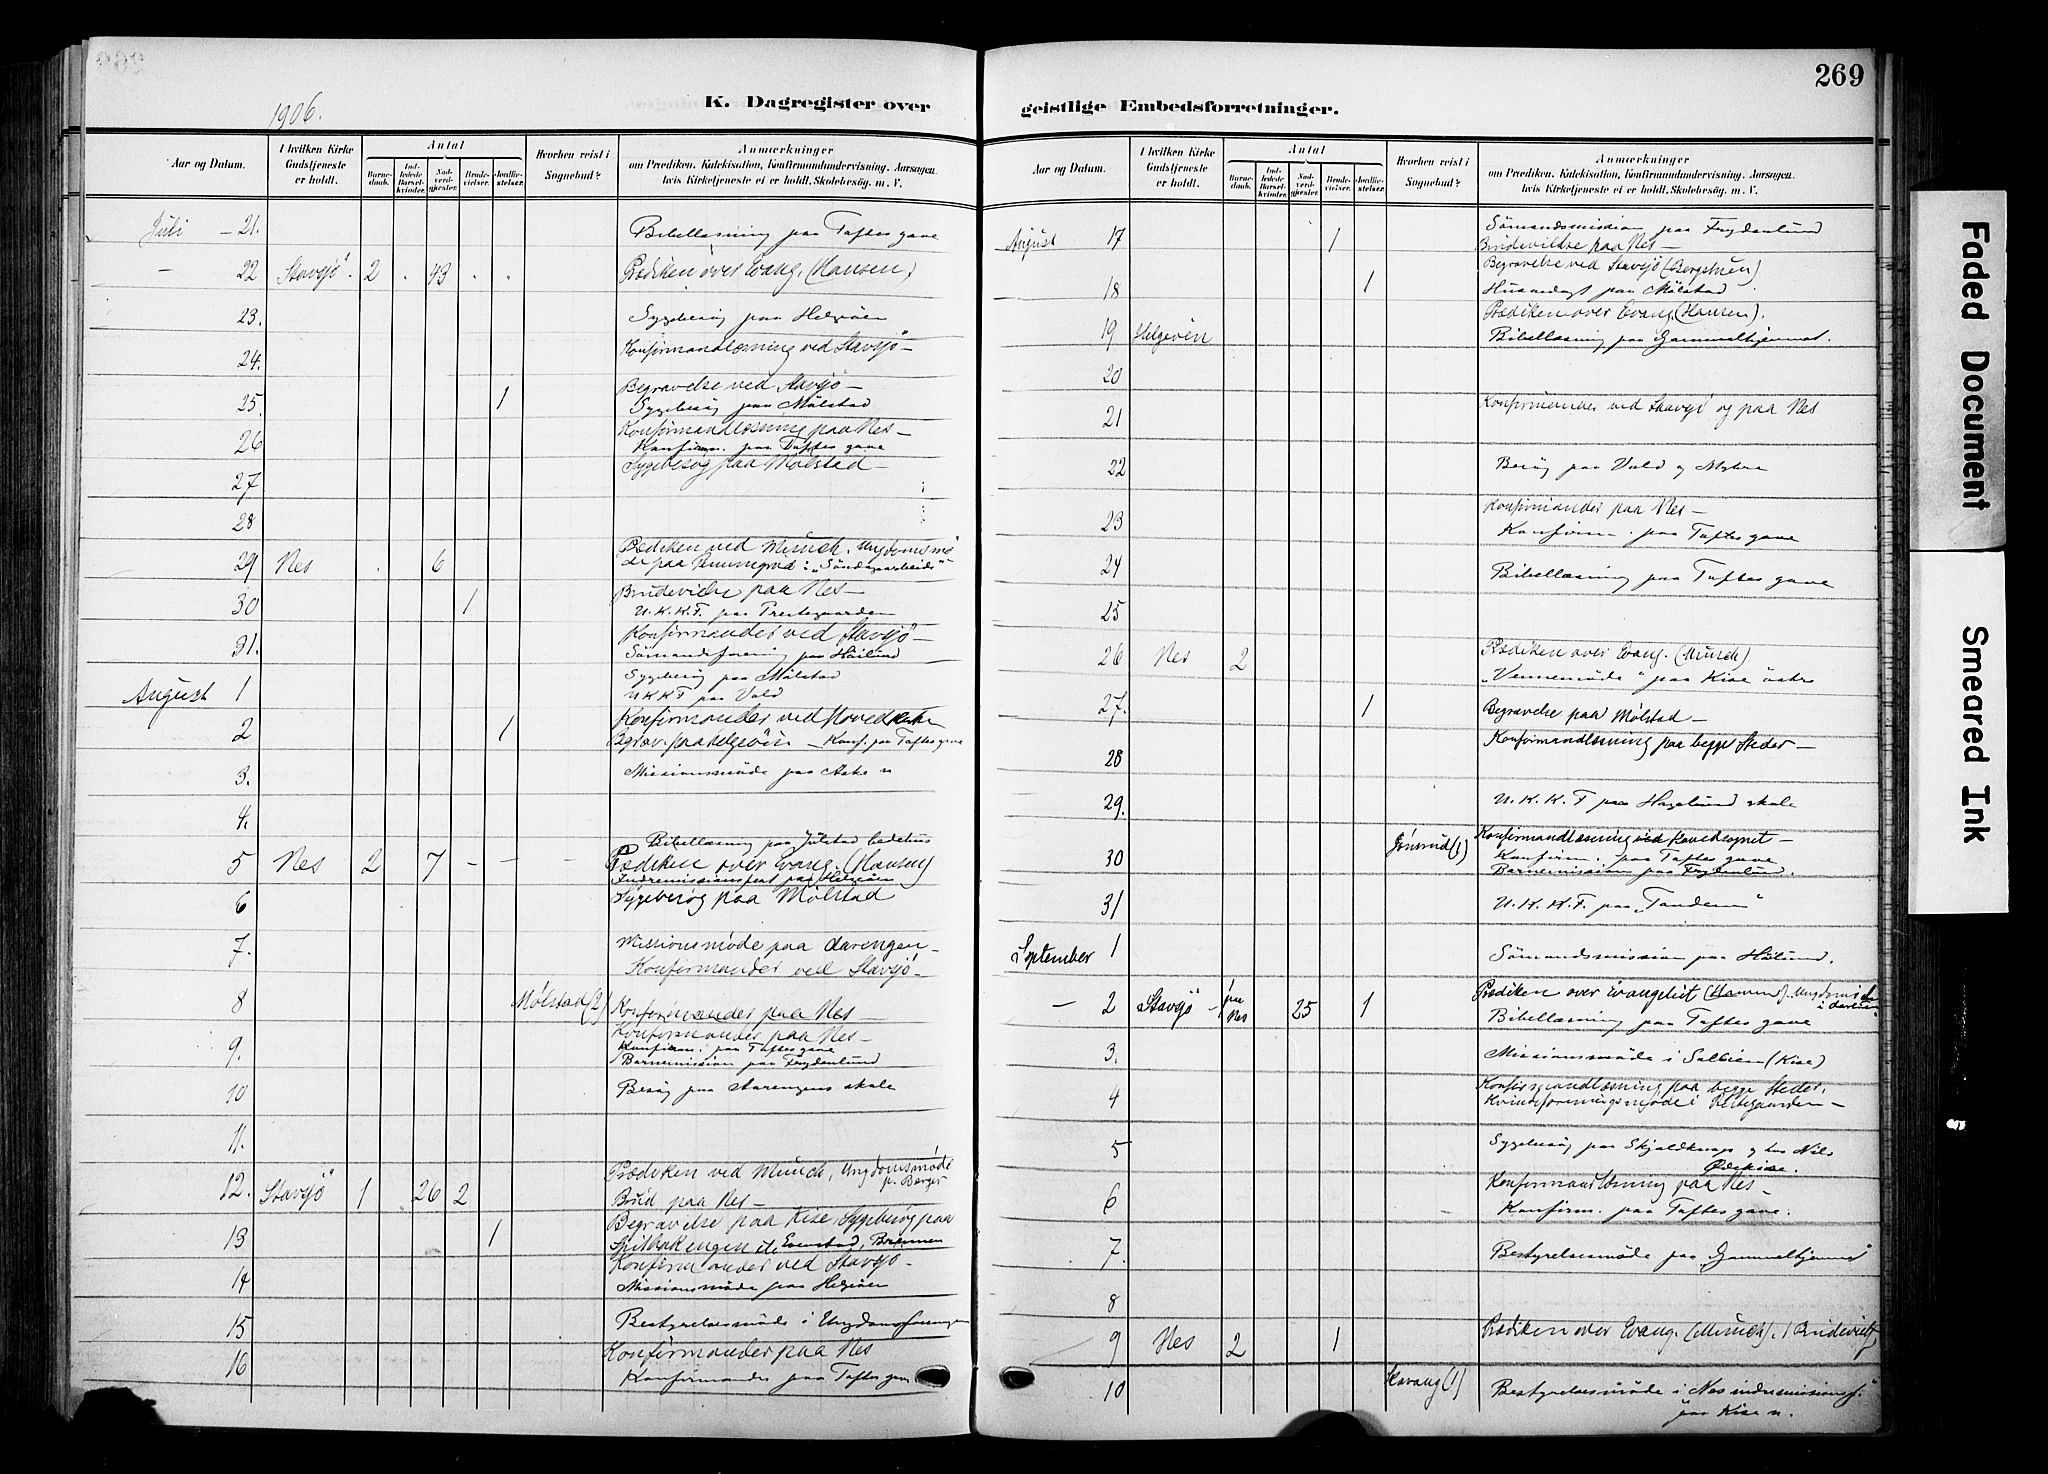 269
1906.
K. Dagregister over
geistlige Embedsforretninger.
Aar og Datum.
I hvilken Kirke Gudstjeneste er holdt.
Antal
Barnedaab.
Indledede Barselkvinder.
Nadverdgjester.
Brudevielser.
Jordfæstelser.
Hvorhen reist i Sognebud?
Anmærkninger
om Prædiken, Katekisation, Konfirmandundervisning, Aarsagen,
hvis Kirketjeneste ei er holdt, Skolebesög m. V.
Juli - 21. Bibellæsning paa Toftes gave
- 22 Stavsjö 2 . 43 . . Prædiken over Evang. (Hansen)
23. Sygebesög paa Helgöen
24. Konfirmandlæsning ved Stavsjö -
25. 1 Begravelse ved Stavsjö -
Sygebesög paa Mölstad
26 Konfirmandlæsning paa Nes -
Konfirm. paa Toftes gave
27 Sygebesög paa Mölstad -
28
29 Nes . 6 Prædiken ved Munch. Ungdomsmö
de paa
30 1 Brudevielse paa Nes -
U.K.K.F. paa Prestegaarden
31. Konfirmander ved Stavsjö -
Sömandsforening paa Höilund
August 1 Sygebesög paa Mölstad
U.K.K.F paa Vold
2 1 Konfirmander ved Hovedkirken
Begrav. paa Helgöen - Konf. paa Toftes gave
3. Missionsmöde paa
4.
Bibellæsning paa Jölstad bedehus
5 Nes 2 7 - - - Prædiken over Evang. (Hansen)
Indremissionsfest paa Helgöen
6 Sygebesög paa Mölstad
7. Missionsmöde paa Aarengen -
Konfirmander ved Stavsjö -
8 Mølstad (2) Konfirmander paa Nes -
9. Konfirmander paa Nes -
Konfirm. paa Toftes gave
Barnemission paa Frydenlund
10 Besög paa Aarengens skole
11.
12. Stavsjö 1 26 2 Prædiken ved Munch, Ungdomsmöde
p. Berger
Brud paa Nes -
13 1 Begravelse paa Kise Sygebesög paa
Evenstad, Brennen
14 Konfirmander ved Stavsjö -
Missionsmöde paa Helgöen
15 Bestyrelsesmöde i Ungdomsforeningen
16 Konfirmander paa Nes
Konfirmander paa Toftes gave
Aar og Datum.
I hvilken Kirke Gudstjeneste er holdt.
Antal
Barnedaab.
Indledede Barselkvinder.
Nadverdgjester.
Brudevielser.
Jordfæstelser.
Hvorhen reist i Sognebud?
Anmærkninger
om Prædiken, Katekisation, Konfirmandundervisning, Aarsagen,
hvis Kirketjeneste ei er holdt, Skolebesög m. V.
August 17 1 Sömandsmission paa Frydenlund
Brudevielse paa Nes -
18 1 Begravelse ved Stavsjö (Bergstuen)
Husandagt paa Mölstad
19 Helgeöen Prædiken over Evang. (Hansen).
Bibellæsning paa Gammelhjemmet.
20
21 Konfirmander ved Stavsjö og paa Nes
22 Besög paa Vold og Myhre
23 Konfirmander paa Nes -
Konfirm. paa Toftes gave
24 Bibellæsning paa Toftes gave
25
26 Nes 2 Prædiken over Evang. (Munch)
"Vennemöde" paa Kise östre
27. 1 Begravelse paa Mølstad -
28 Konfirmandlæsning paa begge Steder -
29. U.K.K.F paa Hagelund skole
30 (1) Konfirmandlæsning ved Hovedsognet -
Konfirm. paa Toftes gave
Barnemission paa Frydenlund.
31 U.K.K.F. paa "Tanderen"
September 1 Sömandsmission paa Höilund.
- 2 Stavsjö 1 paa Nes 25 1 Prædiken over Evangeliet (Hansen). Ungdomsmöde
Bibellæsning paa Toftes gave
3. Missionsmöde i Solbien (Kise)
4 Konfirmandlæsning paa begge Steder.
Kvindeforeningsmøde i Prestegaarden -
5 Sygebesög paa Skjaldknap og hos Nils
Ödekise.
6 Konfirmandlæsning paa Nes -
Konfirm. paa Toftes gave.
7. Bestyrelsesmöde paa "Gammelhjemmet"
8
9 Nes 2 1 Prædiken over Evang. (Munch). 1 Brudevielse
10 (1) Bestyrelsesmöde i Nes indremissionsf.
paa Kise n.
Faded Document
Smeared Ink